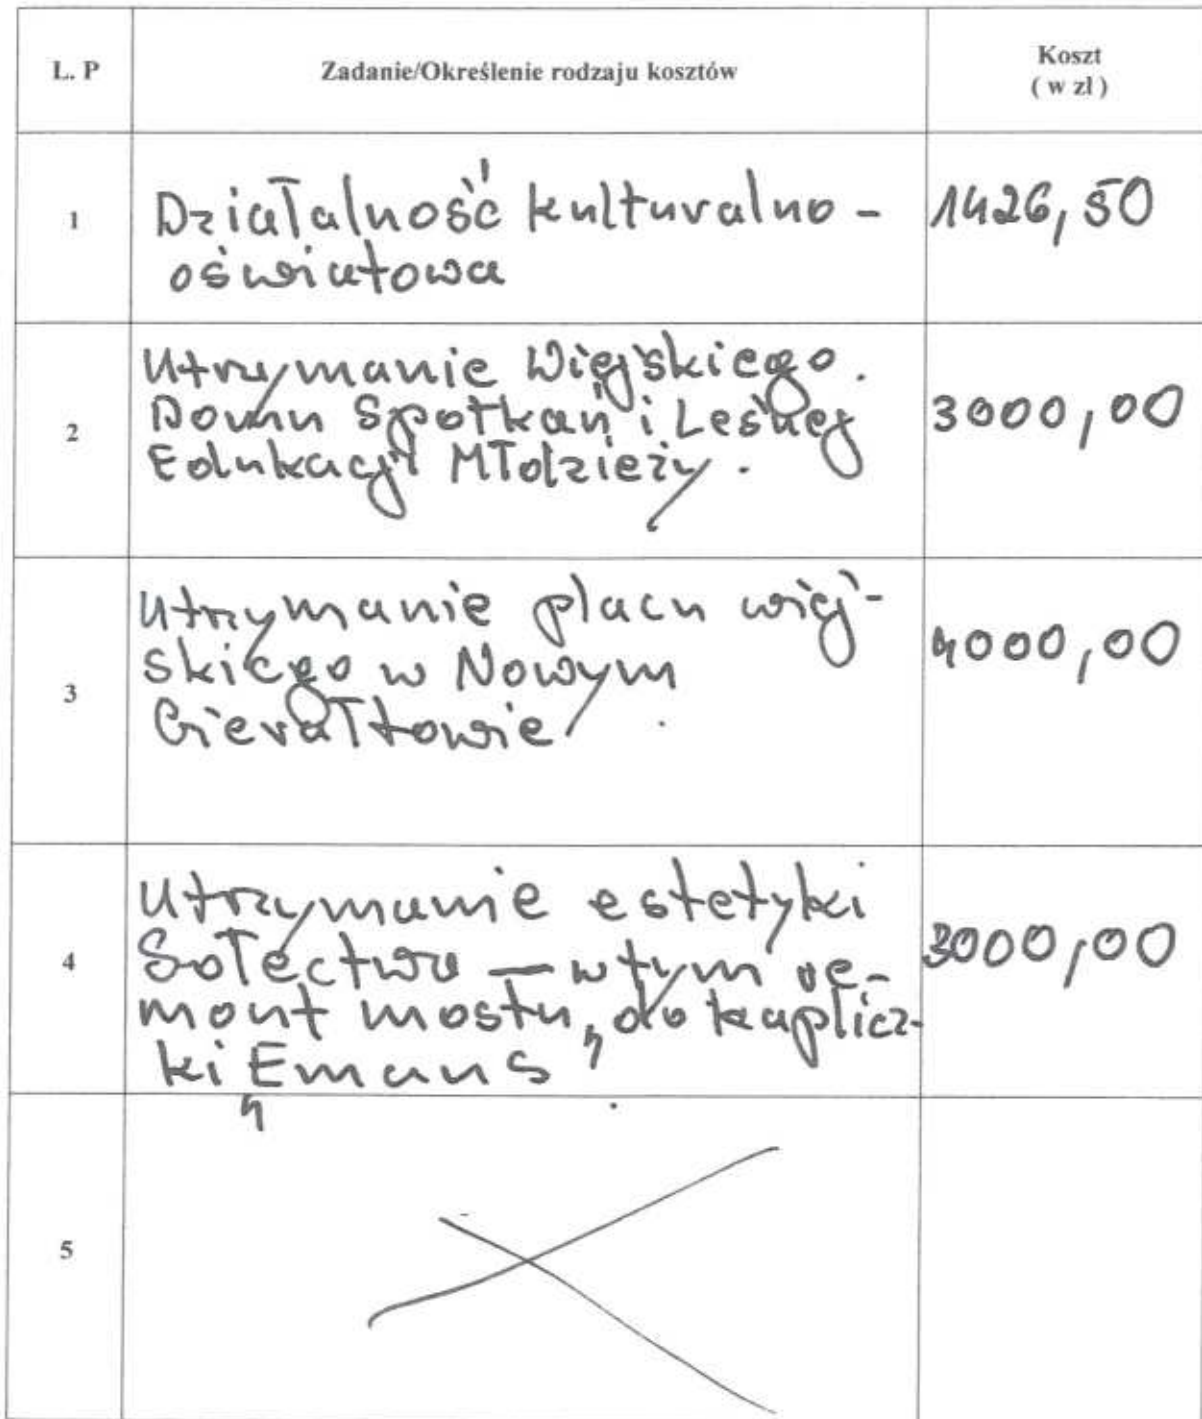 L. P
Zadanie/Określenie rodzaju kosztów
Koszt
( w zł )
1
Działalność kulturalno -
oświatowa
1426,50
2
Utrzymanie Wiejskiego.
Domu Spotkań i Leśnej
Edukacji Młodzieży.
3000,00
3
Utrzymanie placu wiej-
skiego w Nowym
Gierałtowie.
4000,00
4
Utrzymanie estetyki
Sołectwa — w tym re-
mont mostu, do kaplicz-
ki "Emaus".
3000,00
5